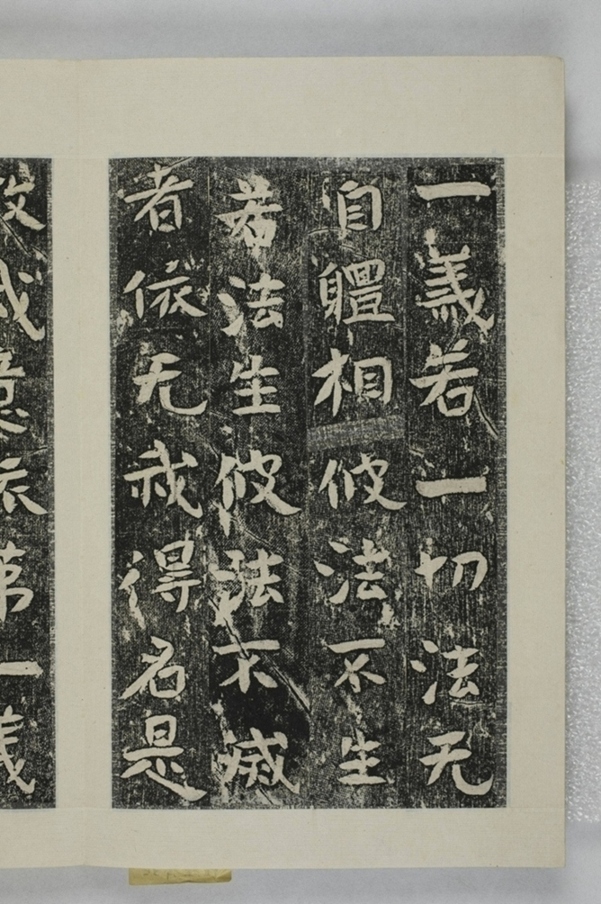 一義若一切法无
自軆相彼法不生
若法生彼法不滅
者依无我得名是
故我意依第一義